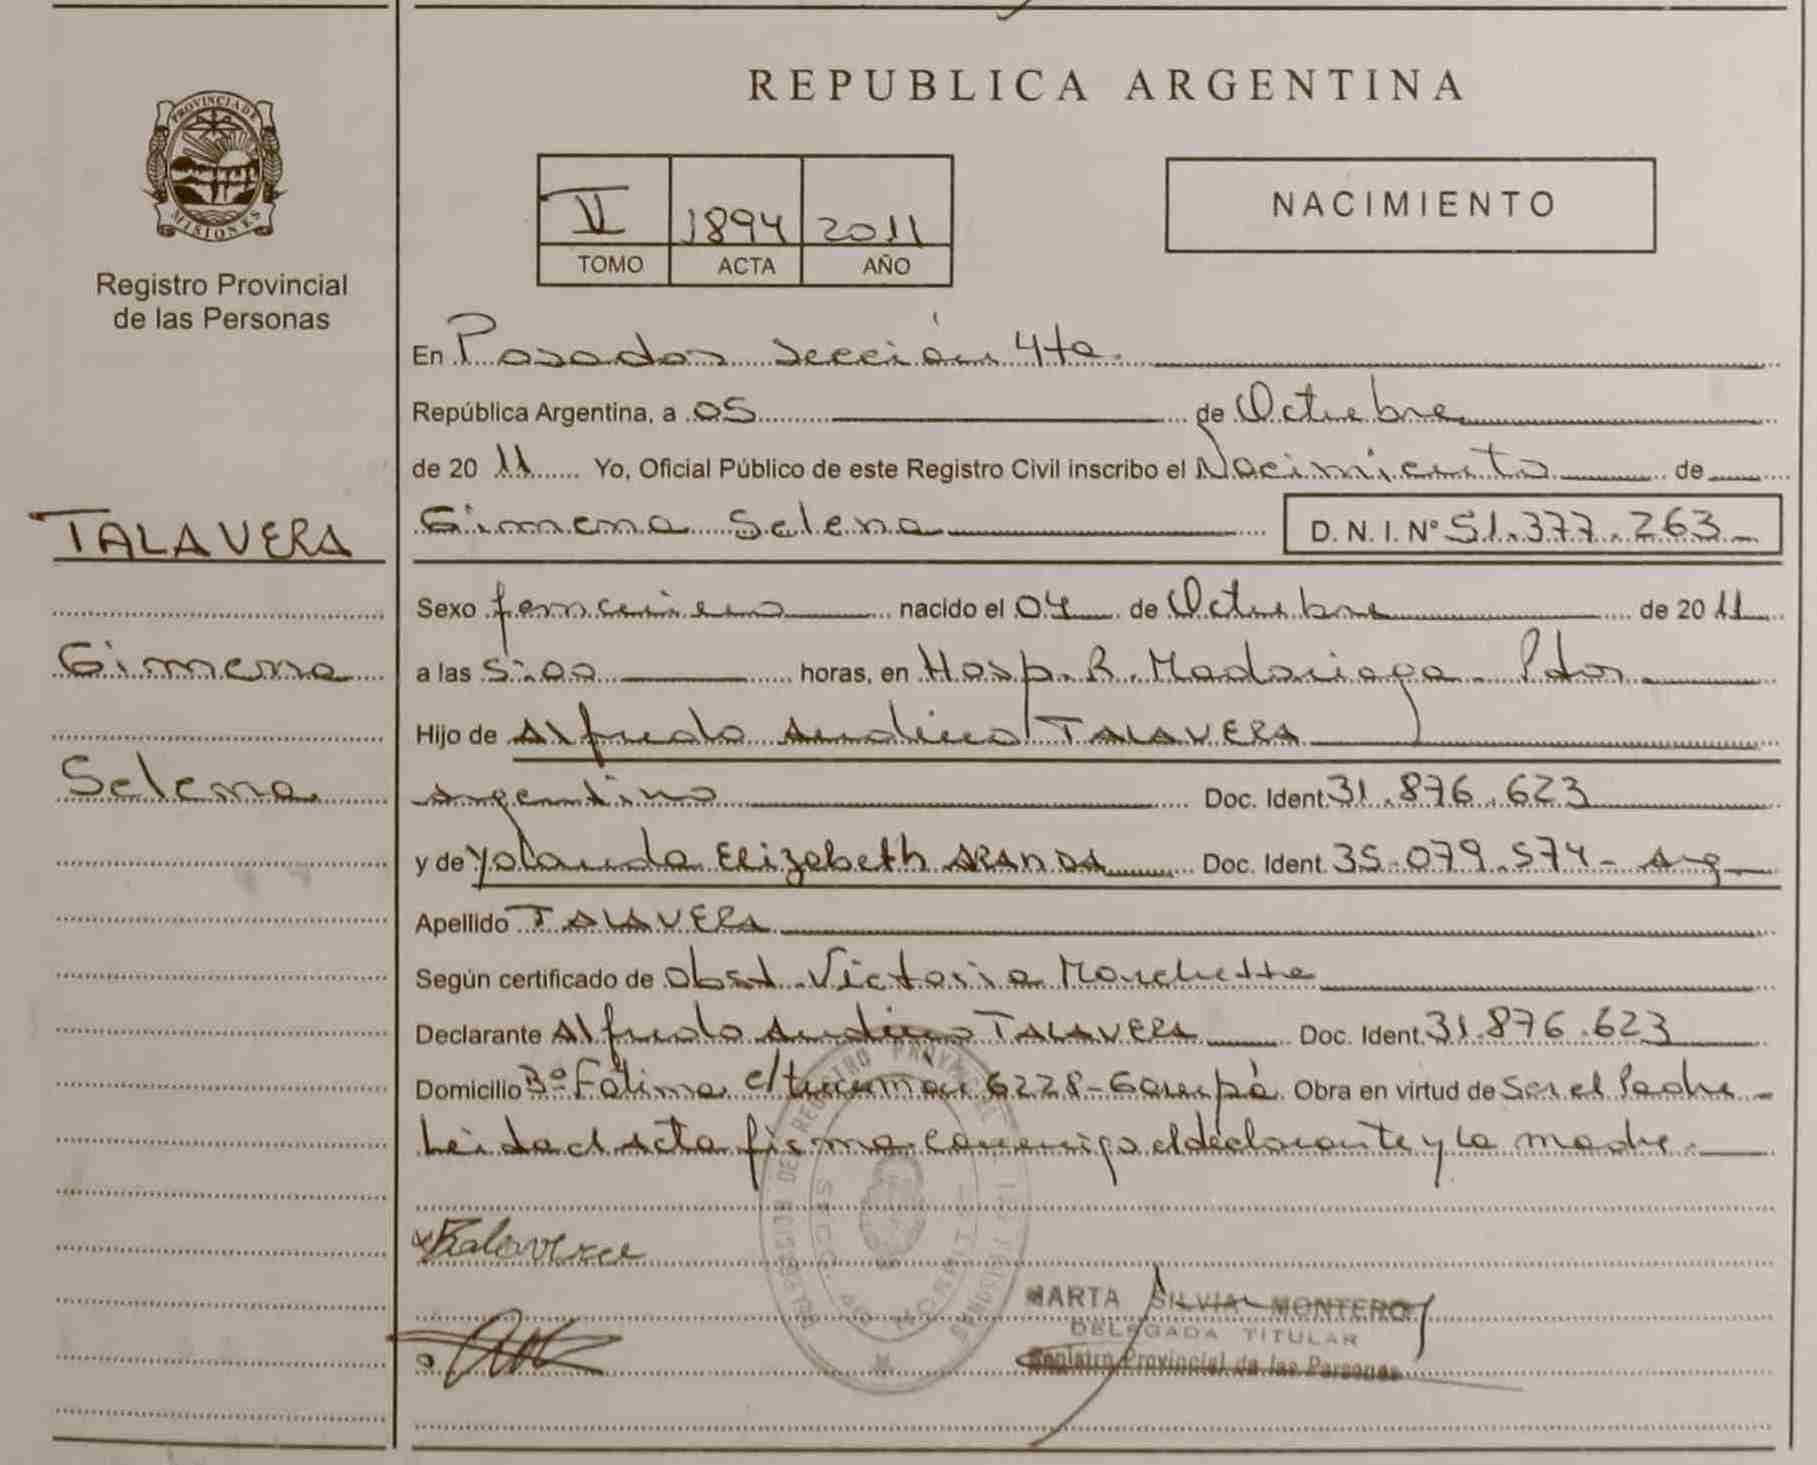 PROVINCIA DE
MISIONES
Registro Provincial
de las Personas
TALAVERA
Gimena
Selena
REPUBLICA ARGENTINA
II 1894 2011
TOMO ACTA AÑO
NACIMIENTO
En Posadas sección 4ta.
República Argentina, a 05 de Octubre
de 20 11 Yo, Oficial Público de este Registro Civil inscribo el Nacimiento de
Gimena Selena D. N. I. Nº 51.377.263
Sexo femenino nacido el 04 de Octubre de 20 11
a las 5:00 horas, en Hosp. R. Madariaga - Pdas
Hijo de Alfredo TALAVERA
Argentino Doc. Ident. 31.876.623
y de Yolanda Elizabeth ARANDA Doc. Ident. 35.079.574 - Arg
Apellido TALAVERA
Según certificado de Obst. Victoria
Declarante Alfredo TALAVERA Doc. Ident. 31.876.623
Domicilio Bº Fátima c/ tucuman 6228 - Garupá Obra en virtud de Ser el Padre
Leida el Acta firma conmigo el declarante y la madre.
Talavera
MARTA SILVIA MONTERO
DELEGADA TITULAR
Registro Provincial de las Personas